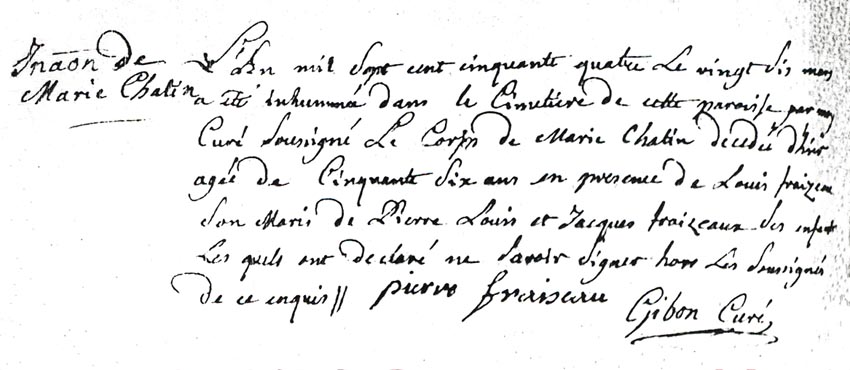 Inãon de
Marie Chatin
L'An mil sept cent cinquante quatre Le vingt six mars
a été inhummée dans le Cimetiere de cette paroisse par moy
Curé Soussigné Le Corps de Marie Chatin decedée d'hier
agée de Cinquante Six ans en presence de Louis fraizeau
Son Maris de Pierre Louis et Jacques fraizeaux Ses enfant
Les quels ont declaré ne Savoir Signer hors Les Soussignés
de ce enquis //
pierre fraiseau
Gibon Curé